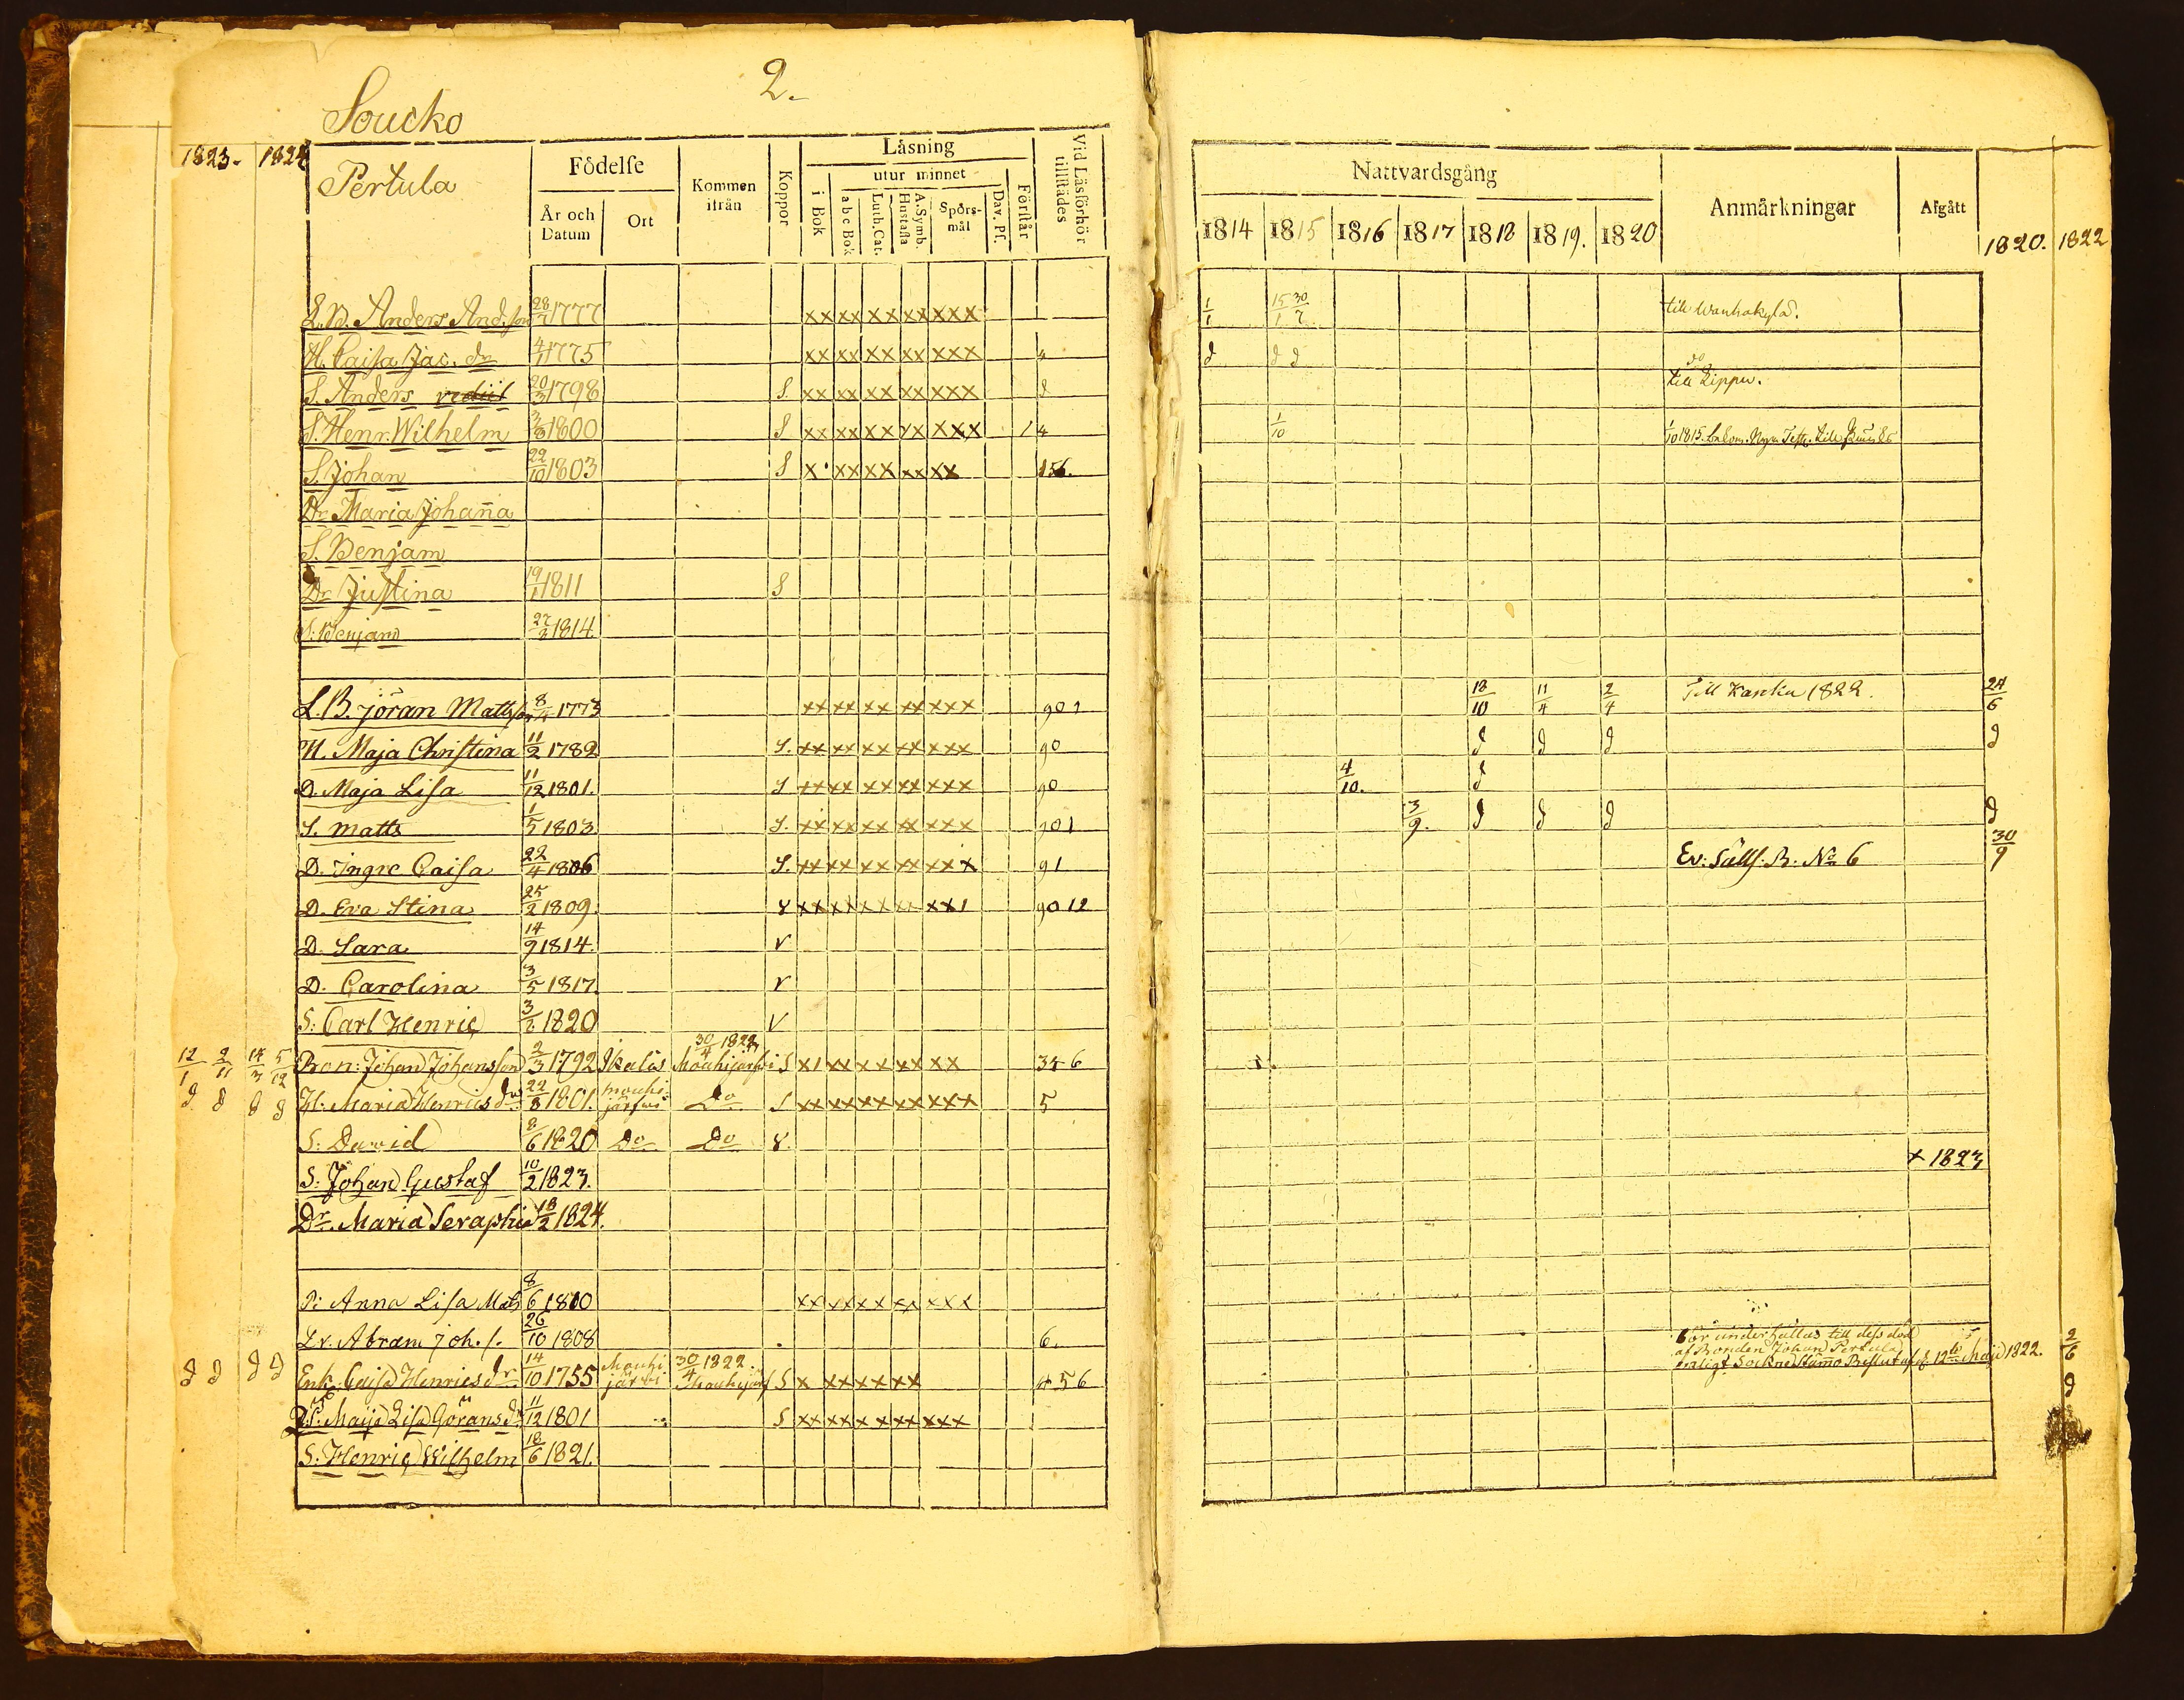 2.
Soucko
1823. 1824
Pertula
Födelse
År och Datum
Ort
Kommen ifrån
Koppor
Läsning
i Bok
utur minnet
a b c Bok
Luth. Cat.
A. Symb. Hustafla
Spörs-mål
Dav. Ps.
Förstår
Vid Läsförhör tillstädes
Nattvardsgång
1814 1815 1816 1817 1818 1819. 1820
Anmärkningar
Afgått
1820. 1822
L.B. Anders And.son 28/7 1777 xx xx xx xx xxx 1/1 15/1 30/7 till Wanhakylä.
H. Caisa Jac. dr 4/1 1775 xx xx xx xx xxx 4 d d d do
S. Anders 20/3 1798 S. xx xx xx xx xxx d till Lippu.
S. Henr. Wilhelm 3/8 1800 S xx xx xx xx xxx 1 4 1/10 1/10 1815. bekom. Nya Test.
S. Johan 22/10 1803 S x xx xx xx xx 156.
Dr. Maria Johaña
S. Benjam
Dr Justina 19/1 1811 S
S: Benjam 27/3 1814
L.B. Jöran Mattsson 8/4 1773 xx xx xx xx xxx 901 18/10 11/4 2/4 Till Kaskia 1822. 24/6
H. Maja Christina 11/2 1782 S. xx xx xx xx xxx 90 d d d d
D. Maja Lisa 11/12 1801. S xx xx xx xx xxx 90 4/10. d
S. Matts 1/5 1803 S. xx xx xx xx xxx 901 3/9. d d d d
D. Ingre Caisa 22/4 1806 S. xx xx xx xx xxx 91 Ev: Sälls. B. No 6 30/9
D. Eva Stina 25/2 1809. 8 xx xx xx xx xx1 9012
D. Sara 14/9 1814. v
D. Carolina 3/5 1817. v
S: Carl Henric 3/2 1820 V
12/1 2/11 14/3 5/12 Bon: Johan Johansson 2/3 1792 Ikalis 30/4 1822 Mouhijärfvi S x1 xx xx xx xx 346
d d d d H. Maria Henrics dr 22/8 1801. Mouhijärfvi Do S xx xx xx xx xxx 5
S: David 8/6 1820 Do Do 8.
S: Johan Gustaf 10/2 1823. + 1823
Dr. Maria Seraphia 18/2 1824.
Pi Anna Lisa Mats 8/6 1800 xx xx xx xx xxx
Lr. Abram Joh. s. 26/10 1808 6.
Bör underhållas till dess död
af Bonden Johan Pertula
enligt Sockne Stämo Beslut af d. 12te Maji 1822. 2/6
d d d d Enk. Caisa Henricsdr 14/10 1755 Mouhijärvi 30/4 1822 Mouhijärf S x xx xx xx 456 d
Maija Lisa Göransdr 11/12 1801 S xx xx xx xx xxx
S. Henric Wilhelm 18/6 1821.